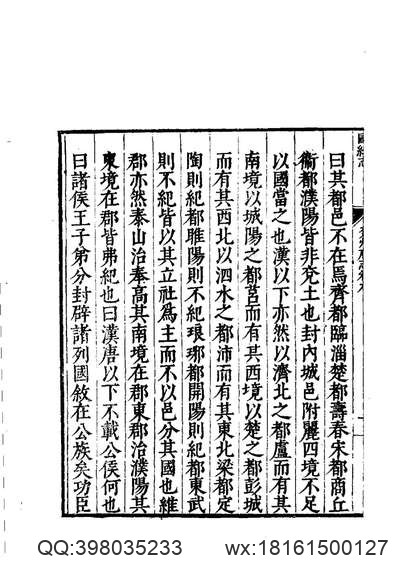 國紀志
曰其都邑不在焉齊都臨淄楚都壽春宋都商丘
衞都濮陽皆非兗土也封內城邑附麗四境不足
以國當之也漢以下亦然以濟北之都盧而有其
南境以城陽之都莒而有其西境以楚之都彭城
而有其西北以泗水之都沛而有其東北梁都定
陶則紀都睢陽則不紀琅琊都開陽則紀都東武
則不紀皆以其立社爲主而不以邑分其國也維
郡亦然泰山治奉高其南境在郡東郡治濮陽其
東境在郡皆弗紀也曰漢唐以下不載公侯何也
曰諸侯王子弟分封辟諸列國敘在公族矣功臣
QQ:398035233 wx:18161500127